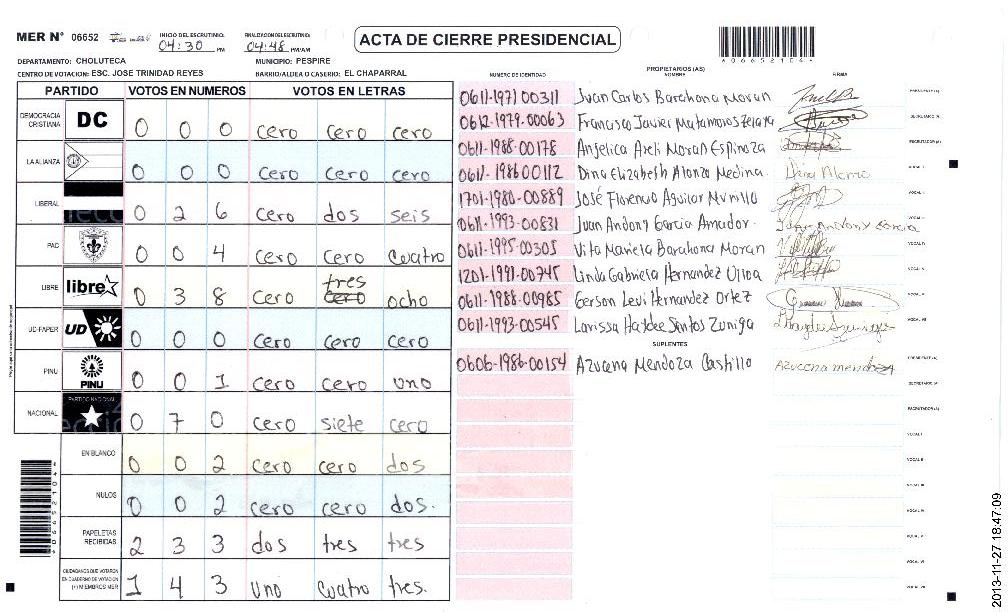 MER N° 06652
INICIO DEL ESCRUTINIO: 04:30 PM
FINALIZACION DEL ESCRUTINIO: 04:48 PM/AM
ACTA DE CIERRE PRESIDENCIAL
DEPARTAMENTO: CHOLUTECA MUNICIPIO: PESPIRE
CENTRO DE VOTACION: ESC. JOSE TRINIDAD REYES BARRIO/ALDEA O CASERIO: EL CHAPARRAL
PARTIDO VOTOS EN NUMEROS VOTOS EN LETRAS
DEMOCRACIA CRISTIANA DC 0 0 0 cero cero cero
LA ALIANZA 0 0 0 cero cero cero
LIBERAL 0 2 6 cero dos seis
PAC 0 0 4 cero cero cuatro
LIBRE libre 0 3 8 cero tres cero ocho
UD-FAPER UD 0 0 0 cero cero cero
PINU PINU 0 0 1 cero cero uno
NACIONAL PARTIDO NACIONAL 0 7 0 cero siete cero
EN BLANCO 0 0 2 cero cero dos
NULOS 0 0 2 cero cero dos.
PAPELETAS RECIBIDAS 2 3 3 dos tres tres
CIUDADANOS QUE VOTARON EN CUADERNO DE VOTACION (+) MIEMBROS MER 1 4 3 uno cuatro tres.
PROPIETARIOS (AS)
NUMERO DE IDENTIDAD NOMBRE FIRMA
0611-1971 00311 Juan Carlos Barahona Moran PRESIDENTE (A)
0612-1979-00063 Francisco Javier Matamoros SECRETARIO (A)
0611-1988-00178 Angelica Areli Moran Espinoza ESCRUTADOR (A)
0611-1986 00112 Dina Elizabeth Alonzo Medina. Dina Alonzo
1701-1980-00889 José Florencio Aguilar Murillo
0611-1993-00831 Juan Andony Garcia Amador. Juan Andony Garcia
0611-1995-00305 Vita Mariela Barahona Moran
1201-1991-00745 Linda Gabriela Hernandez
0611-1988-00985 Gerson Levi Hernandez Ortez
0611-1993-00545 Larissa Haydee Santos Zuniga
SUPLENTES
0606-1986-00154 Azucena Mendoza Castillo Azucena mendoza PRESIDENTE (A)
SECRETARIO (A)
ESCRUTADOR (A)
VOCAL I
2013-11-27 18:47:09